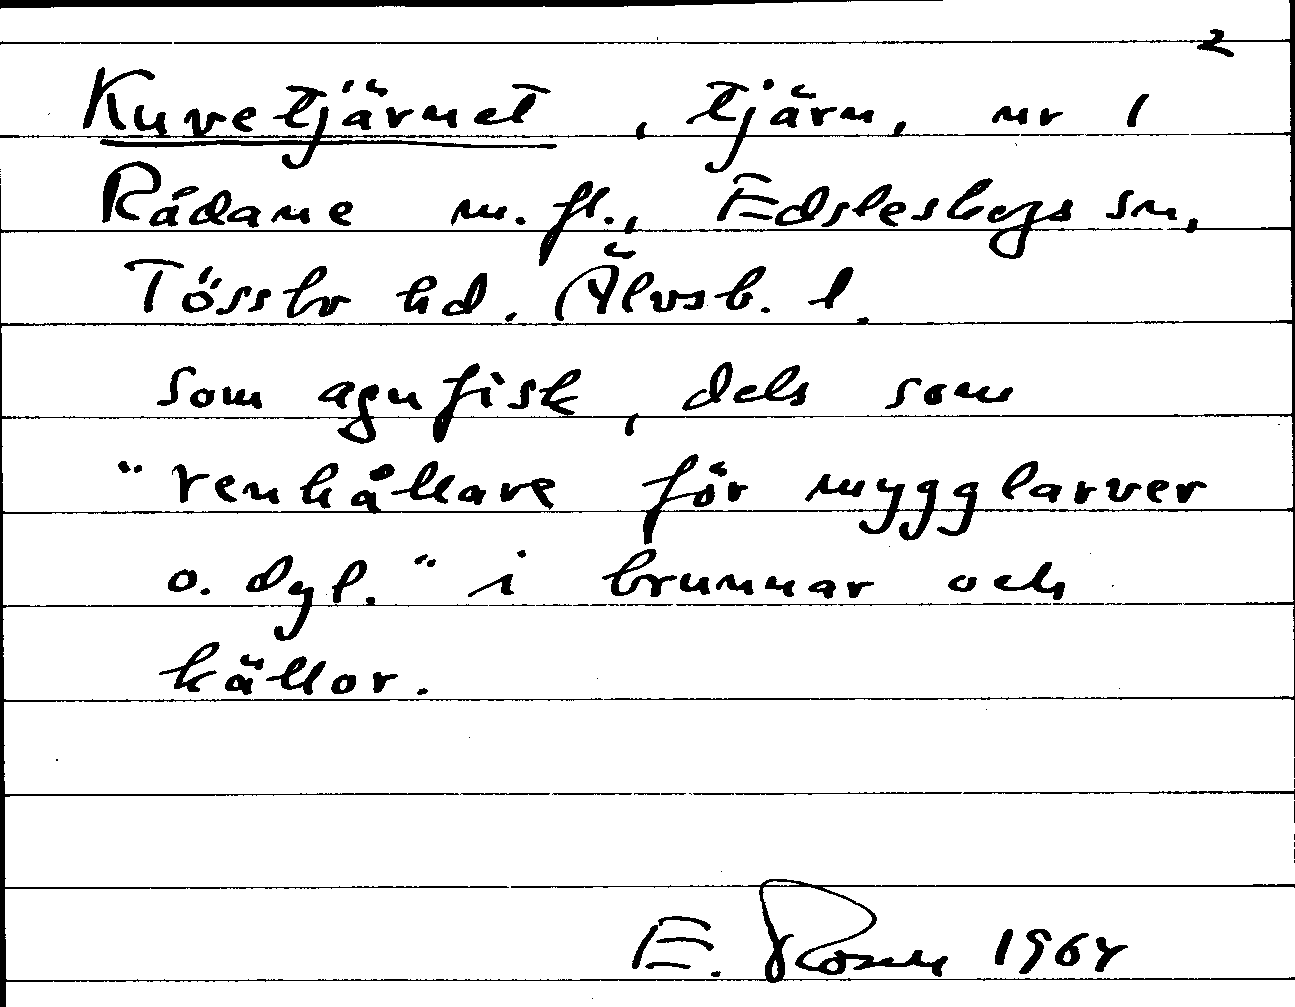 2
Kuvetjärnet, tjärn, nr 1
Rådane m. fl., Edslesbgs sn,
Tössbo hd. Älvsb. l.
som agnfisk, dels som
"renhållare för mygglarver
o. dyl." i brunnar och
källor.
E. Rosell 1964